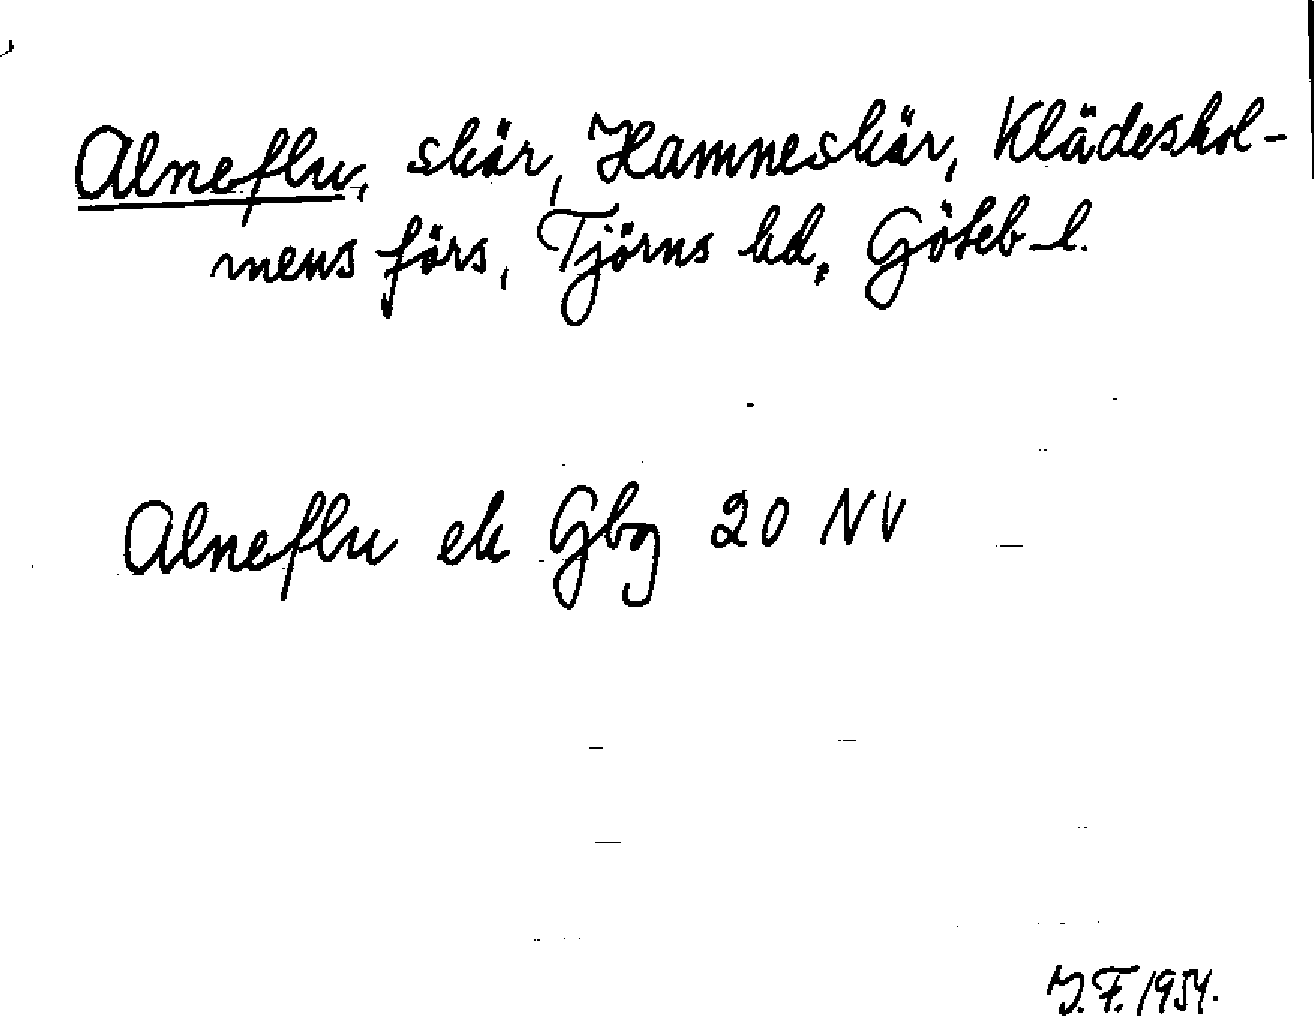 Alneflu, skär, Hamneskär, Klädeshol-
mens förs, Tjörns hd, Göteb l.
Alneflu ek Gbg 20 NV
J.F. 1954.